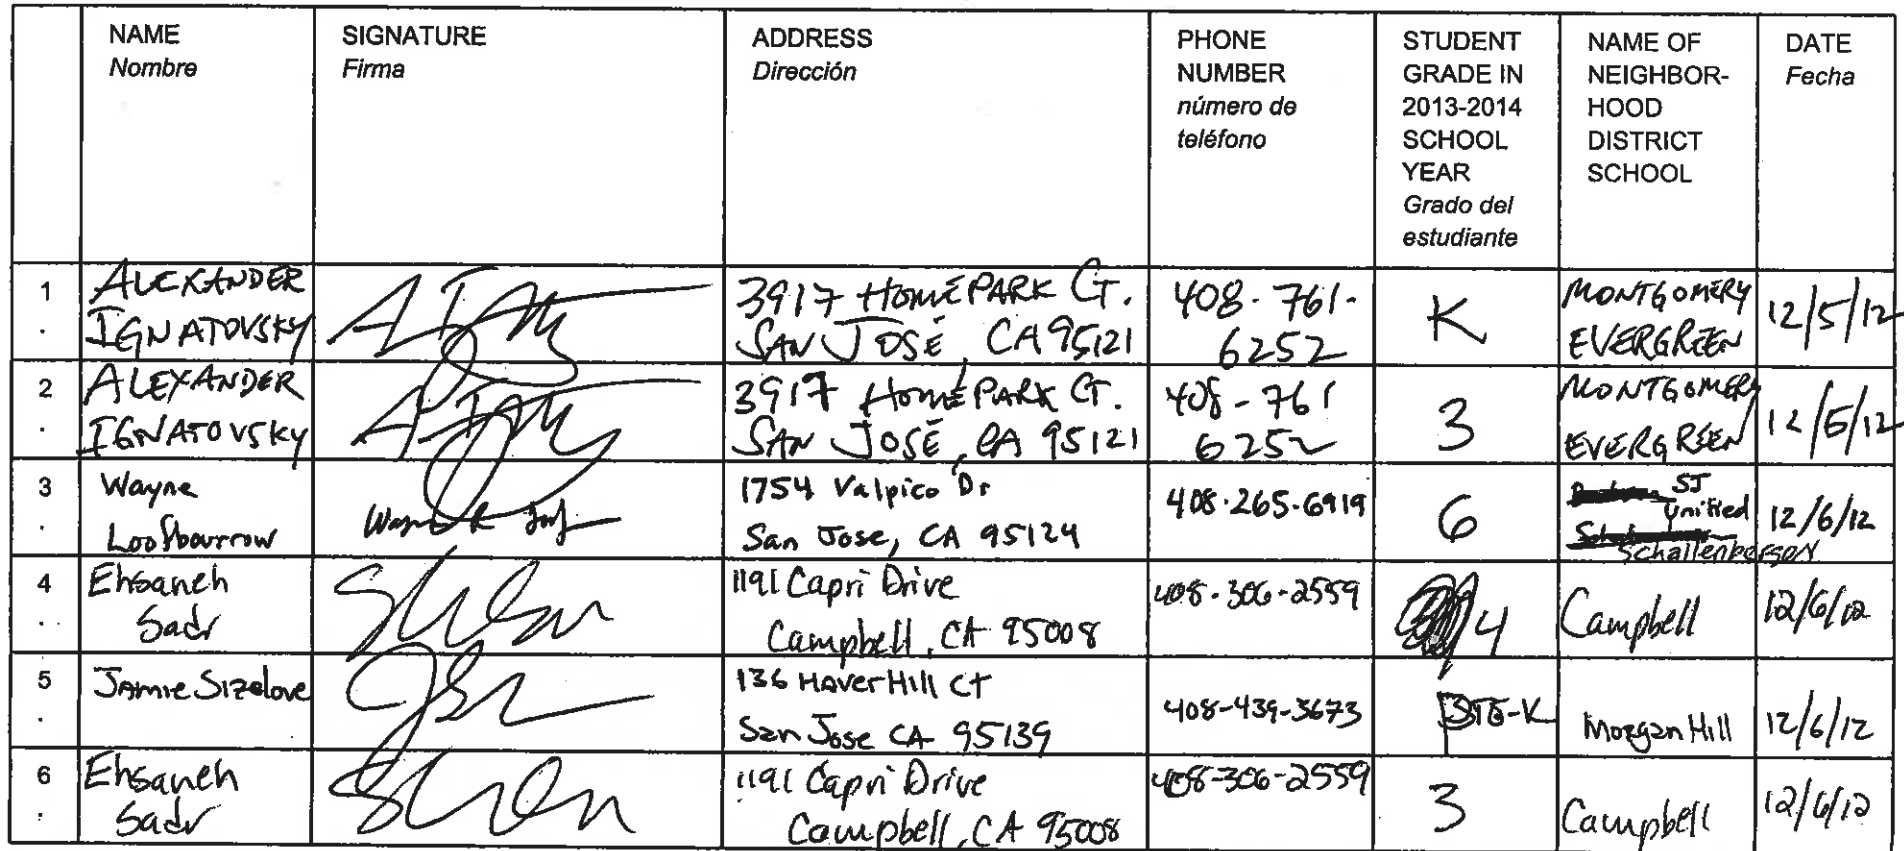 NAME
Nombre
SIGNATURE
Firma
ADDRESS
Dirección
PHONE
NUMBER
número de
teléfono
STUDENT
GRADE IN
2013-2014
SCHOOL
YEAR
Grado del
estudiante
NAME OF
NEIGHBOR-
HOOD
DISTRICT
SCHOOL
DATE
Fecha
1.
ALEXANDER
IGNATOVSKY
3917 HOMEPARK CT.
SAN JOSÉ, CA 95121
408-761-
6252
K
MONTGOMERY
EVERGREEN
12/5/12
2.
ALEXANDER
IGNATOVSKY
3917 HOMEPARK CT.
SAN JOSÉ, CA 95121
408-761
6252
3
MONTGOMERY
EVERGREEN
12/5/12
3.
Wayne
Loofbourrow
Wayne R
1754 Valpico Dr
San Jose, CA 95124
408-265-6919
6
SJ
Unified
Schallenberger
12/6/12
4.
Ehsaneh
Sadr
1191 Capri Drive
Campbell, CA 95008
408-306-2559
4
Campbell
12/6/12
5.
Jamie Sizelove
136 HaverHill Ct
San Jose CA 95139
408-439-3673
Morgan Hill
12/6/12
6.
Ehsaneh
Sadr
1191 Capri Drive
Campbell, CA 95008
408-306-2559
3
Campbell
12/6/12